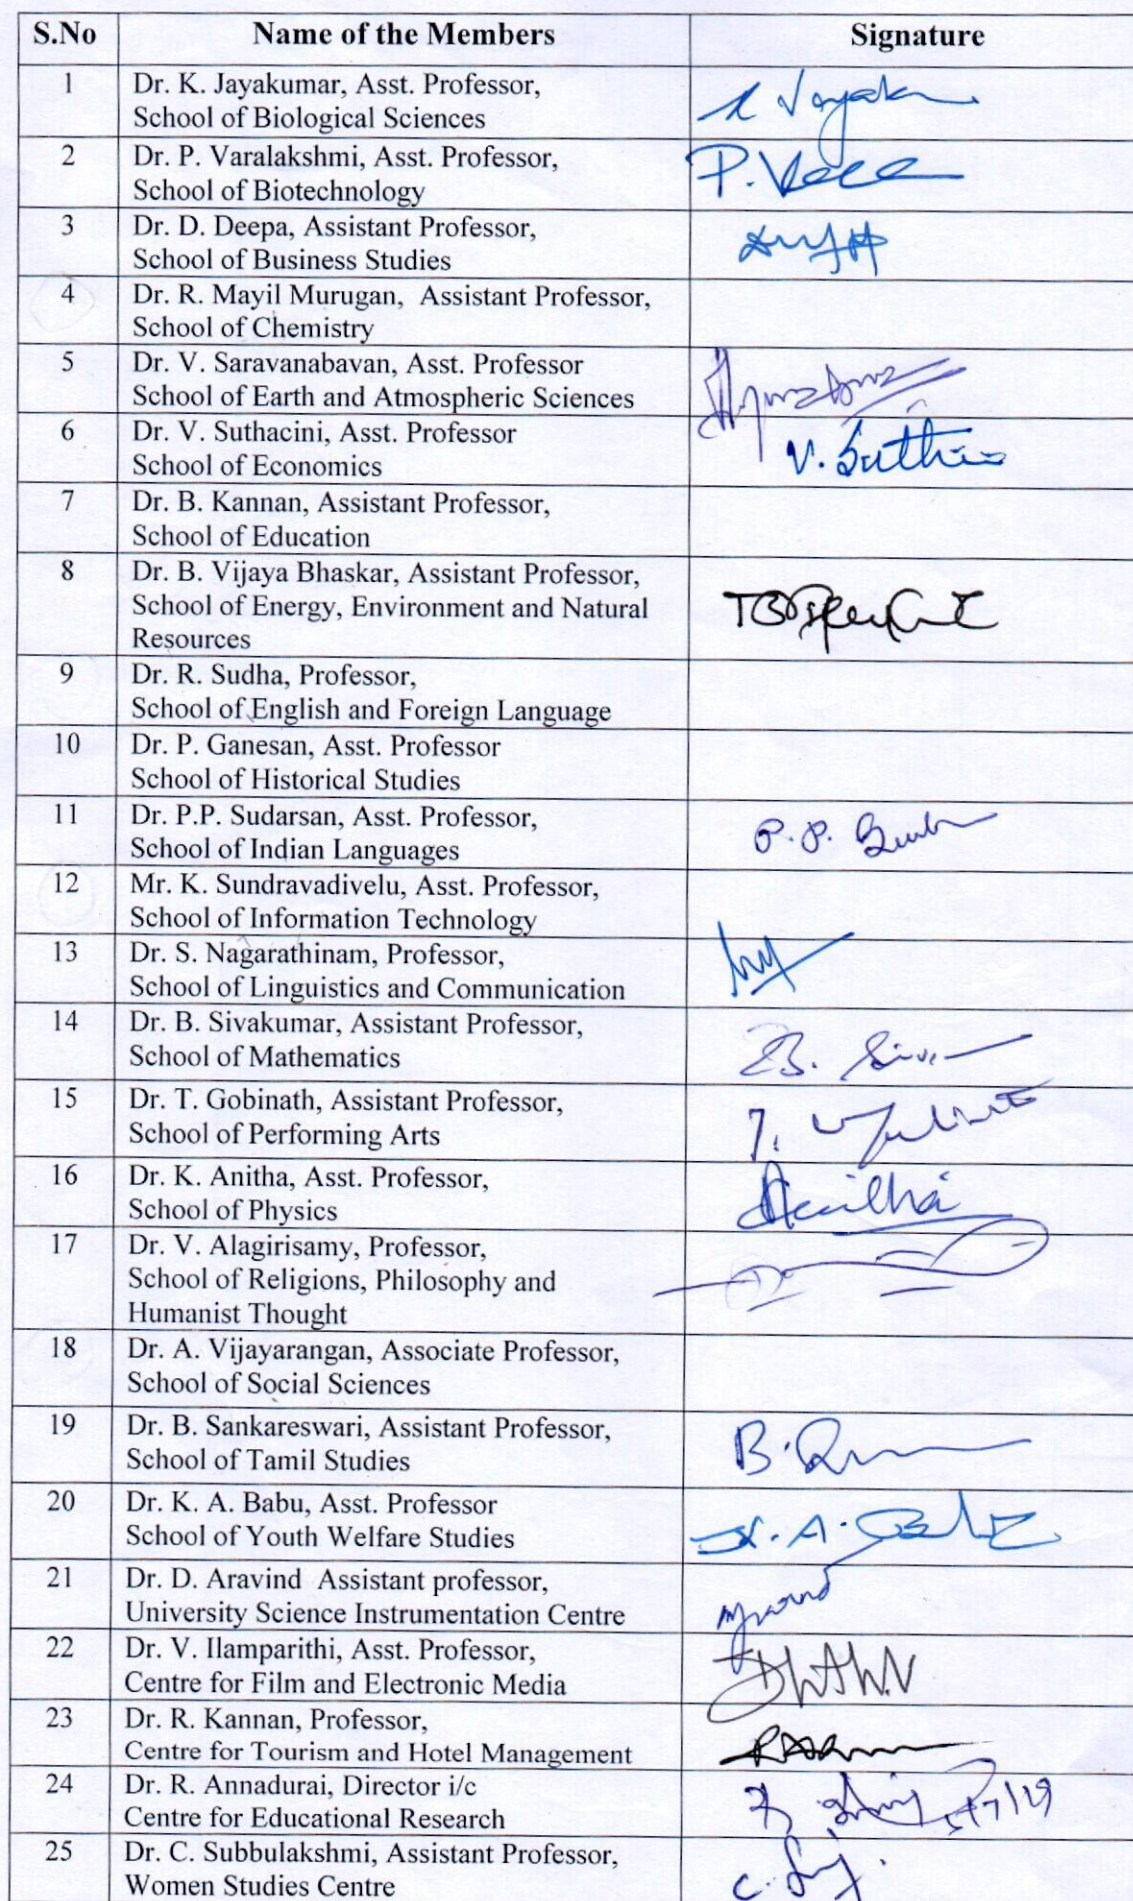 S.No Name of the Members Signature
1 Dr. K. Jayakumar, Asst. Professor,
School of Biological Sciences
2 Dr. P. Varalakshmi, Asst. Professor,
School of Biotechnology
3 Dr. D. Deepa, Assistant Professor,
School of Business Studies
4 Dr. R. Mayil Murugan, Assistant Professor,
School of Chemistry
5 Dr. V. Saravanabavan, Asst. Professor
School of Earth and Atmospheric Sciences
6 Dr. V. Suthacini, Asst. Professor
School of Economics
7 Dr. B. Kannan, Assistant Professor,
School of Education
8 Dr. B. Vijaya Bhaskar, Assistant Professor,
School of Energy, Environment and Natural
Resources
9 Dr. R. Sudha, Professor,
School of English and Foreign Language
10 Dr. P. Ganesan, Asst. Professor
School of Historical Studies
11 Dr. P.P. Sudarsan, Asst. Professor,
School of Indian Languages
P.P.
12 Mr. K. Sundravadivelu, Asst. Professor,
School of Information Technology
13 Dr. S. Nagarathinam, Professor,
School of Linguistics and Communication
14 Dr. B. Sivakumar, Assistant Professor,
School of Mathematics
15 Dr. T. Gobinath, Assistant Professor,
School of Performing Arts
16 Dr. K. Anitha, Asst. Professor,
School of Physics
17 Dr. V. Alagirisamy, Professor,
School of Religions, Philosophy and
Humanist Thought
18 Dr. A. Vijayarangan, Associate Professor,
School of Social Sciences
19 Dr. B. Sankareswari, Assistant Professor,
School of Tamil Studies
20 Dr. K. A. Babu, Asst. Professor
School of Youth Welfare Studies
21 Dr. D. Aravind Assistant professor,
University Science Instrumentation Centre
22 Dr. V. Ilamparithi, Asst. Professor,
Centre for Film and Electronic Media
23 Dr. R. Kannan, Professor,
Centre for Tourism and Hotel Management
24 Dr. R. Annadurai, Director i/c
Centre for Educational Research
25 Dr. C. Subbulakshmi, Assistant Professor,
Women Studies Centre